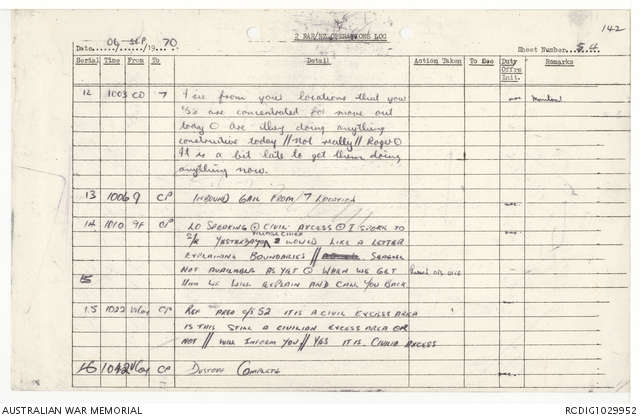 142
2 RAR/NZ OPERATIONS LOG
Date 06 SEP 1970
Sheet Number 54
Serial Time From To Detail Action Taken To Dec Duty Offrs Init. Remarks
12 1003 CO 7 I see from your locations that you
's are concentrated for move out
today O are they doing anything
constructive today // Not really // Roger O
It is a bit late to get them doing
anything now.
13 1006 7 CP INBOUND GAIL FROM 7 LOCATION
14 1010 9F CP LO SPEAKING O CIVIL AXCESS O I SPOKE TO
YESTERDAY VILLAGE CHIEF WOULD LIKE A LETTER
EXPLAINING BOUNDARIES // SEAGULL
NOT AVAILABLE AS YET O WHEN WE GET
HIM WE WILL EXPLAIN AND CALL YOU BACK
15 1022 CP REF AREA C/S 52 IT IS A CIVIL EXCESS AREA
IS THIS STILL A CIVILIAN EXCESS AREA OR
NOT // WILL INFORM YOU // YES IT IS. CIVIL EXCESS
16 1042 CP DUSTOFF COMPLETE
AUSTRALIAN WAR MEMORIAL
RCDIG1029952